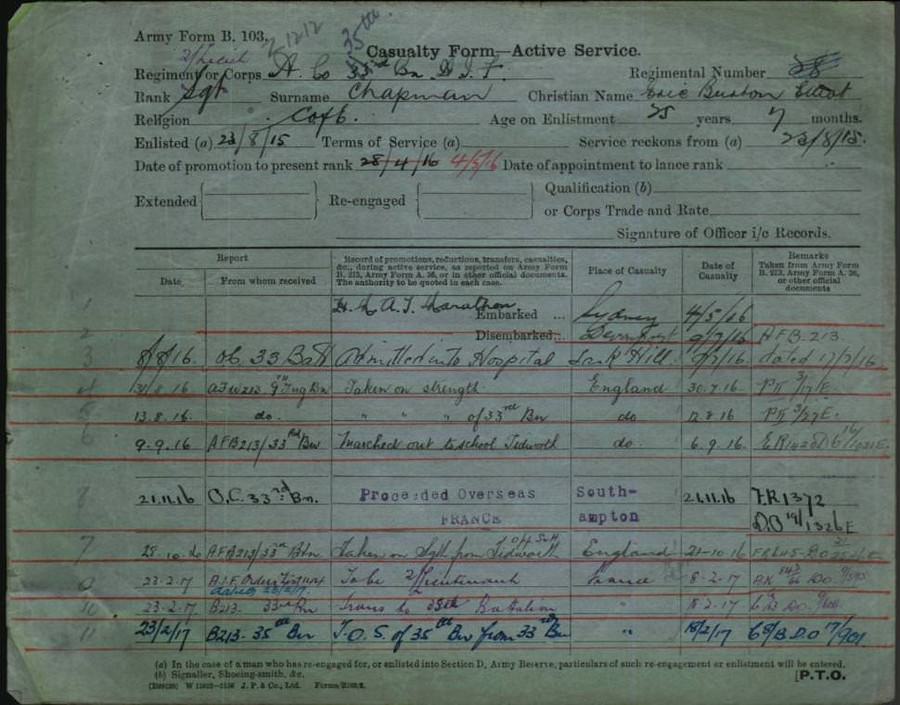 Army Form B. 103.
2/Lieut 2-12-12 35th
Casualty Form—Active Service.
Regiment or Corps A. Co 33rd Bn A.I.F. Regimental Number 28
Rank Sgt Surname Chapman Christian Name Eric Elliot
Religion Cof E. Age on Enlistment 25 years 7 months.
Enlisted (a) 23/8/15 Terms of Service (a) Service reckons from (a) 23/8/15.
Date of promotion to present rank 28/4/16 4/5/16 Date of appointment to lance rank
Extended Re-engaged Qualification (b)
or Corps Trade and Rate
Signature of Officer i/c Records.
Report
Date From whom received
Record of promotions, reductions, transfers, casualties, &c., during active service, as reported on Army Form B. 213, Army Form A. 36, or in other official documents. The authority to be quoted in each case.
Place of Casualty
Date of Casualty
Remarks
Taken from Army Form B. 213, Army Form A. 36, or other official documents
1 H.M.A.T. Marathon Embarked ... Sydney 4/5/16
2 Disembarked... Devonport 9/7/16 AFB-213
3 8/8/16 Oc. 33 Batt Admitted into Hospital Lark Hill /7/16 dated 17/7/16
4 31.8.16 9th Tng Bn Taken on strength England 30.7.16 PII 3/17 E.
5 13.8.16. do. " " " of 33rd Bn do 12.8.16 PII 3/27 E.
6 9-9.16 AFB213/33rd Bn Marched out to school Tedworth do. 6.9.16.
8 21.11.16 O.C. 33rd Bn. Proceeded Overseas FRANCE South-ampton 21.11.16 F.R 1372
D.O 19/1326 E
7 28.10.16 AFB213/33rd Btn Taken on Sgth from Tedworth O.H. Sch England 21-10 16
9 23-2.17 A.I.F. Orders dated 23/2/17. To be 2/Lieutenant France 8-2.17
10 23-2-17 B213. 33rd Bn Trans to 35th Battalion " .2-17
11 23/2/17 B213-35th Bn T.O.S. of 35th Bn from 33rd Bn " /2/17 D.O 17/901
(a) In the case of a man who has re-engaged for, or enlisted into Section D, Army Reserve, particulars of such re-engagement or enlistment will be entered.
(b) Signaller, Shoeing-smith, &c.
J. P. & Co., Ltd. [P.T.O.